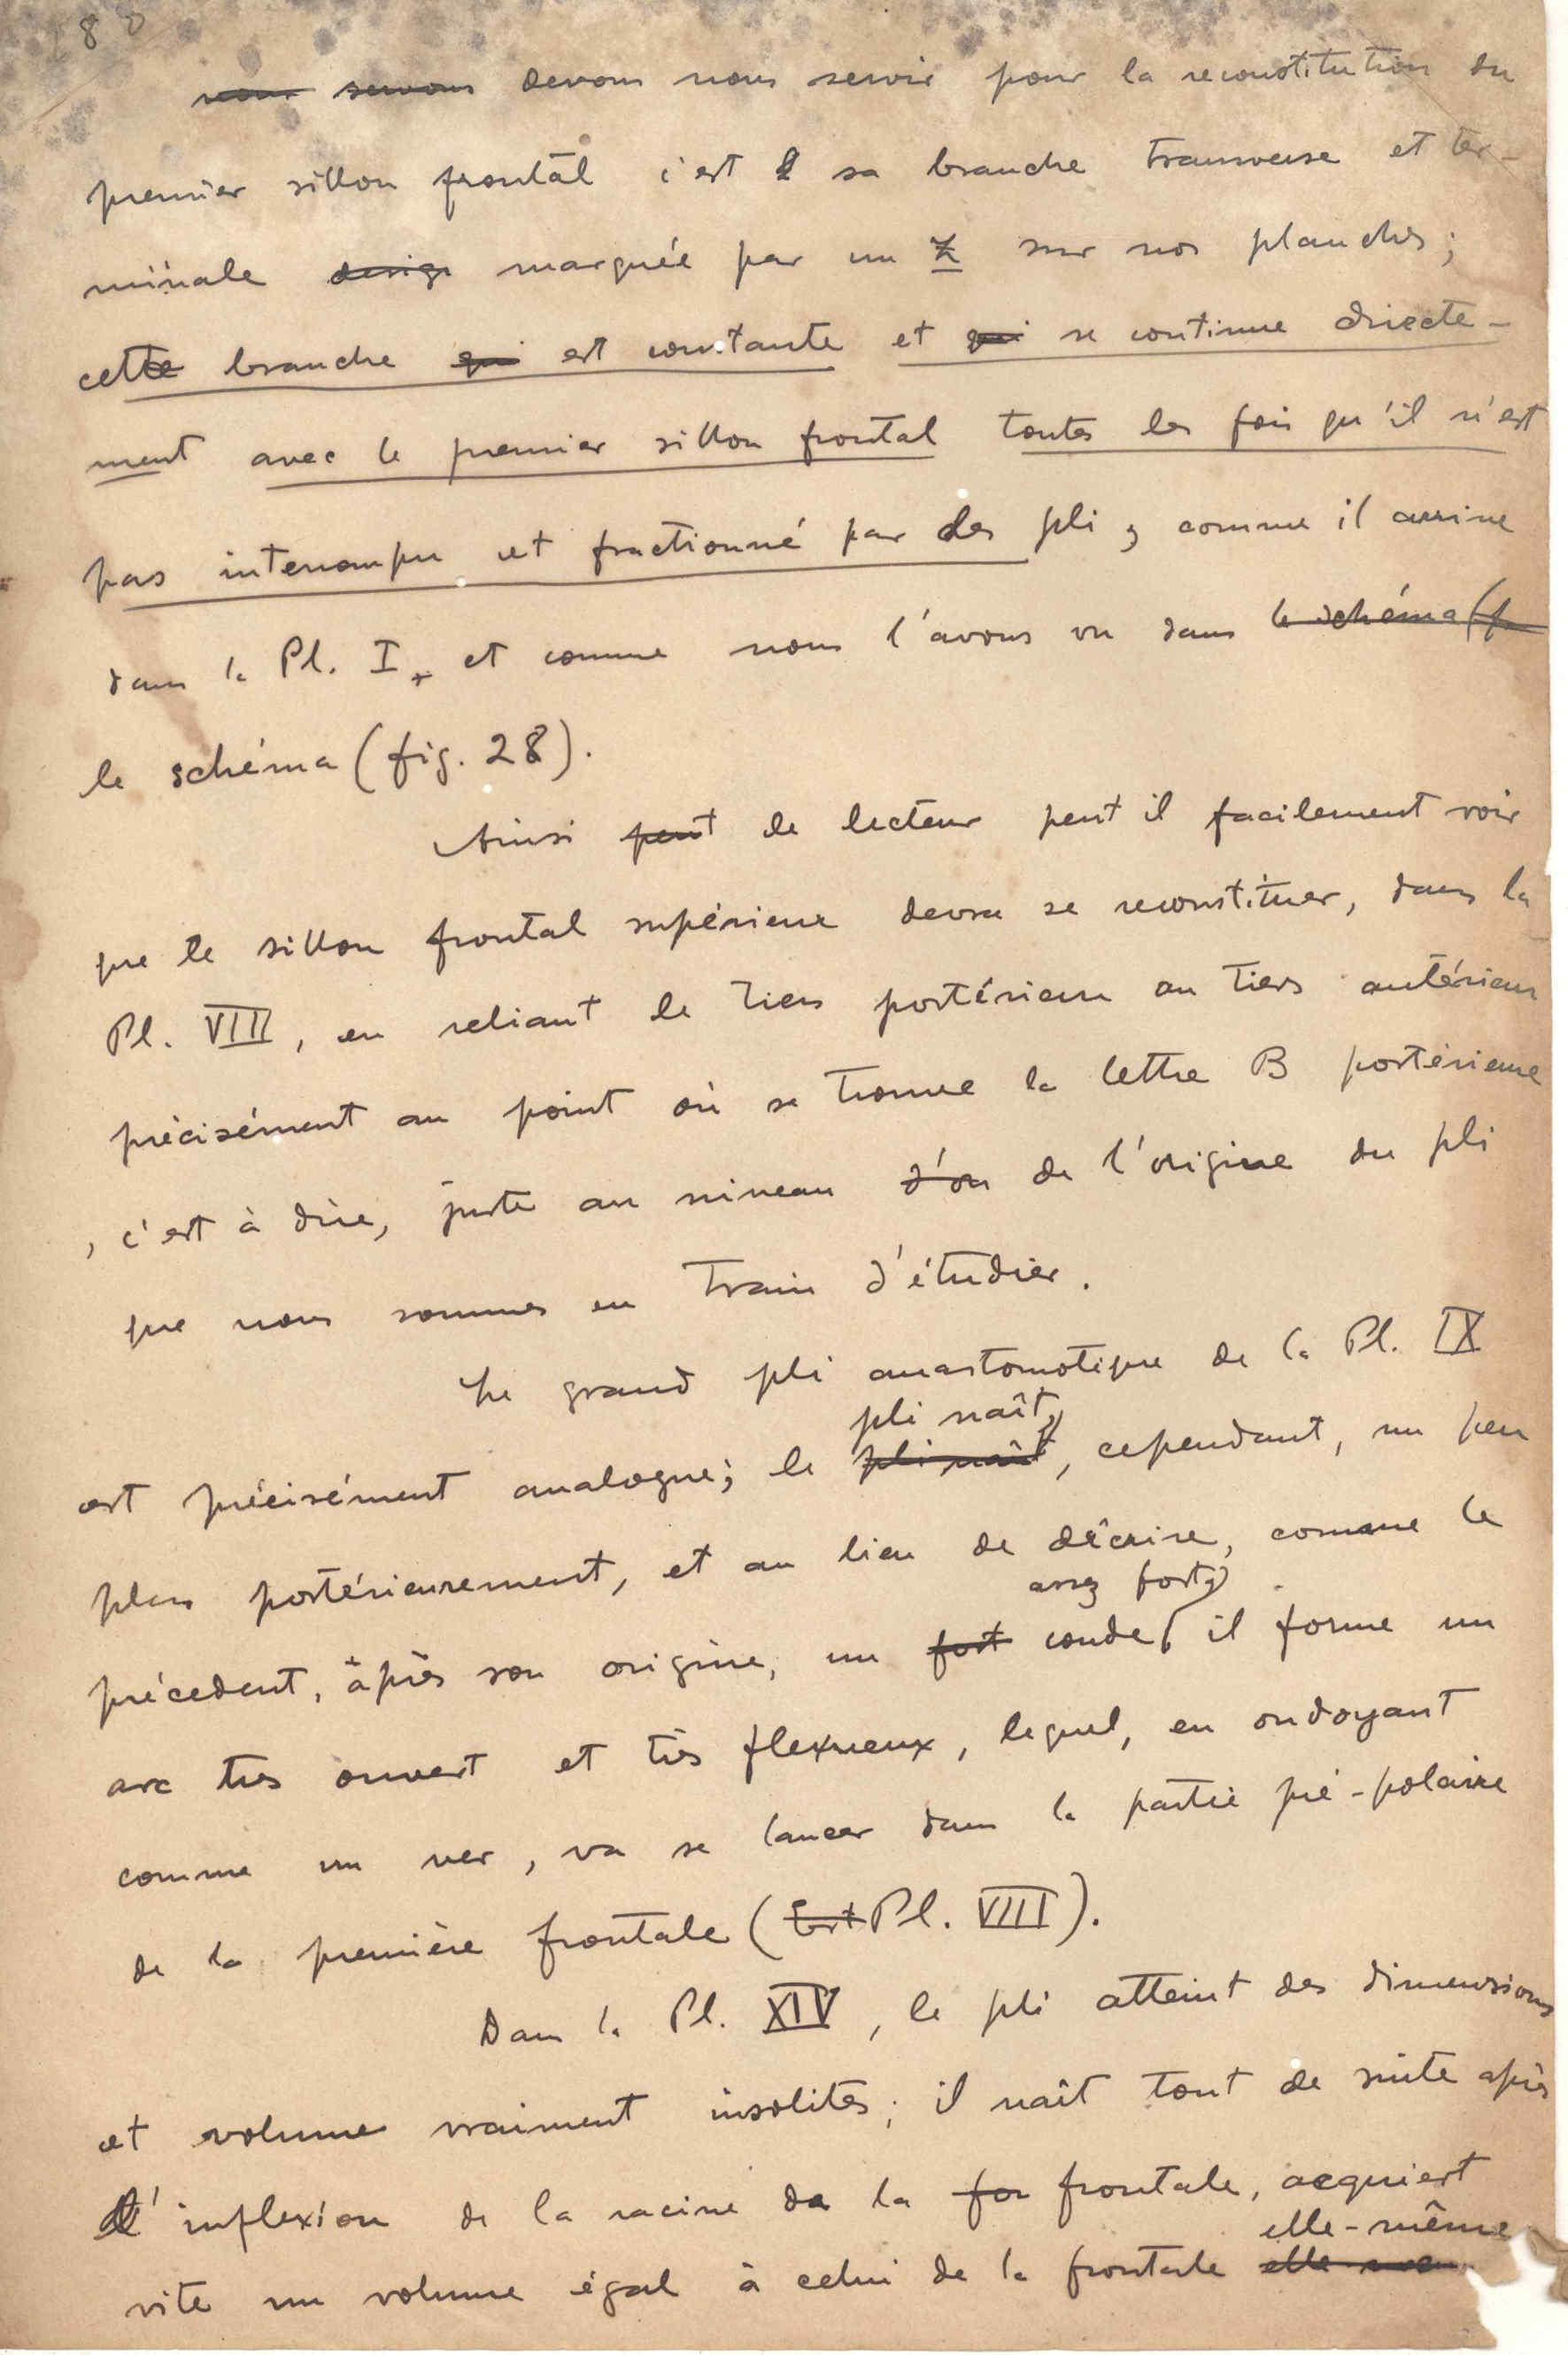 80
nous servons devons nous servir pour la reconstitution du
premier sillon frontal c'est sa branche transverse et ter-
minale design marquée par un z sur nos planches;
cette branche qui est constante et qui se continue directe-
ment avec le premier sillon frontal toutes les fois qu'il n'est
pas interrompu et fractionné par des pli, comme il arrive
dans la Pl. I, et comme nous l'avons vu dans le schéma (f
le schéma (fig. 28).
Ainsi peut le lecteur peut il facilement voir
que le sillon frontal supérieur devra se reconstituer, dans la
Pl. VIII, en reliant le tiers postérieur au tiers antérieur
précisément au point où se trouve la lettre B postérieure
, c'est à dire, juste au niveau d'on de l'origine du pli
que nous sommes en train d'étudier.
Le grand pli anastomotique de la Pl. IX
pli naît,
est précisément analogue; le pli naît, cependant, un peu
plus postérieurement, et au lieu de décrire, comme le
assez fort,
précedent, après son origine, un fort coude, il forme un
arc très ouvert et très flexueux, lequel, en ondoyant
comme un ver, va se lancer dans la partie pré-polaire
de la première frontale (Pl. VIII).
Dans la Pl. XIV, le pli atteint des dimensions
et volume vraiment insolites; il naît tout de suite après
l'inflexion de la racine de la fon frontale, acquiert
elle-même
vite un volume égal à celui de la frontale elle-mem